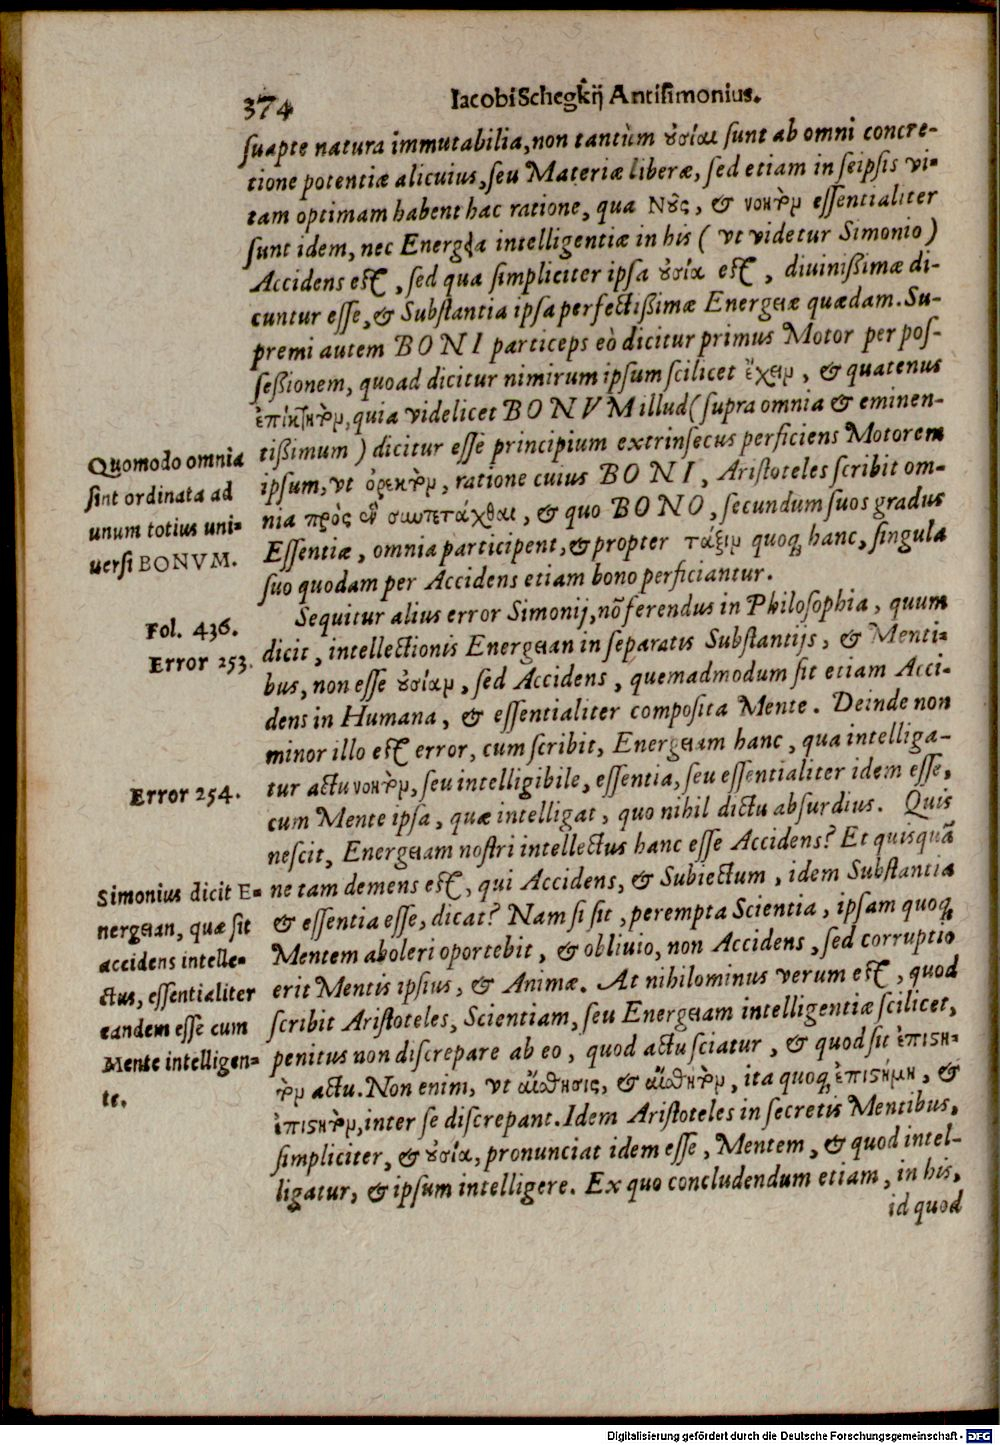 374
Iacobi Schegkij Antisimonius.
suapte natura immutabilia, non tantùm ȣσίαι sunt ab omni concre-
tione potentiæ alicuius, seu Materiæ liberæ, sed etiam in seipsis vi-
tam optimam habent hac ratione, qua Νȣ̃ς, & νοητὸν essentialiter
sunt idem, nec Energεία intelligentiæ in his ( vt videtur Simonio )
Accidens est, sed qua simpliciter ipsa ȣσία est, diuinißimæ di-
cuntur esse, & Substantia ipsa perfectißimæ Energeiæ quædam. Su-
premi autem BONI particeps eò dicitur primus Motor per pos-
seßionem, quoad dicitur nimirum ipsum scilicet ἔχειν, & quatenus
ἐπίκτητὸν, quia videlicet BONVM illud (supra omnia & eminen-
tißimum ) dicitur esse principium extrinsecus perficiens Motorem
ipsum, vt ὀρεκτὸν, ratione cuius BONI, Aristoteles scribit om-
nia πρὸς ἓν συντετάχθαι, & quo BONO, secundum suos gradus
Essentiæ, omnia participent, & propter τάξιν quoq; hanc, singula
suo quodam per Accidens etiam bono perficiantur.
Quomodo omnia
sint ordinata ad
unum totius uni-
uersi BONVM.
Sequitur alius error Simonij, nō ferendus in Philosophia, quum
dicit, intellectionis Energeian in separatis Substantijs, & Menti-
bus, non esse ȣσίαν, sed Accidens, quemadmodum sit etiam Acci-
dens in Humana, & essentialiter composita Mente. Deinde non
minor illo est error, cum scribit, Energeiam hanc, qua intelliga-
tur actu νοητὸν, seu intelligibile, essentia, seu essentialiter idem esse,
cum Mente ipsa, quæ intelligat, quo nihil dictu absurdius. Quis
nescit, Energeiam nostri intellectus hanc esse Accidens? Et quisquā
ne tam demens est, qui Accidens, & Subiectum, idem Substantia
& essentia esse, dicat? Nam si sit, perempta Scientia, ipsam quoq;
Mentem aboleri oportebit, & obliuio, non Accidens, sed corruptio
erit Mentis ipsius, & Animæ. At nihilominus verum est, quod
scribit Aristoteles, Scientiam, seu Energeiam intelligentiæ scilicet,
penitus non discrepare ab eo, quod actu sciatur, & quod sit ἐπιϛη-
τὸν actu. Non enim, vt αἴσθησις, & αἴσθητὸν, ita quoq; ἐπιϛήμη, &
ἐπιϛητὸν, inter se discrepant. Idem Aristoteles in secretis Mentibus,
simpliciter, & ȣσίᾳ, pronunciat idem esse, Mentem, & quod intel-
ligatur, & ipsum intelligere. Ex quo concludendum etiam, in his,
id quod
Fol. 436.
Error 253.
Error 254.
Simonius dicit E-
nergeian, quæ sit
accidens intelle-
ctus, essentialiter
eandem esse cum
Mente intelligen-
te.
Digitalisierung gefördert durch die Deutsche Forschungsgemeinschaft - DFG